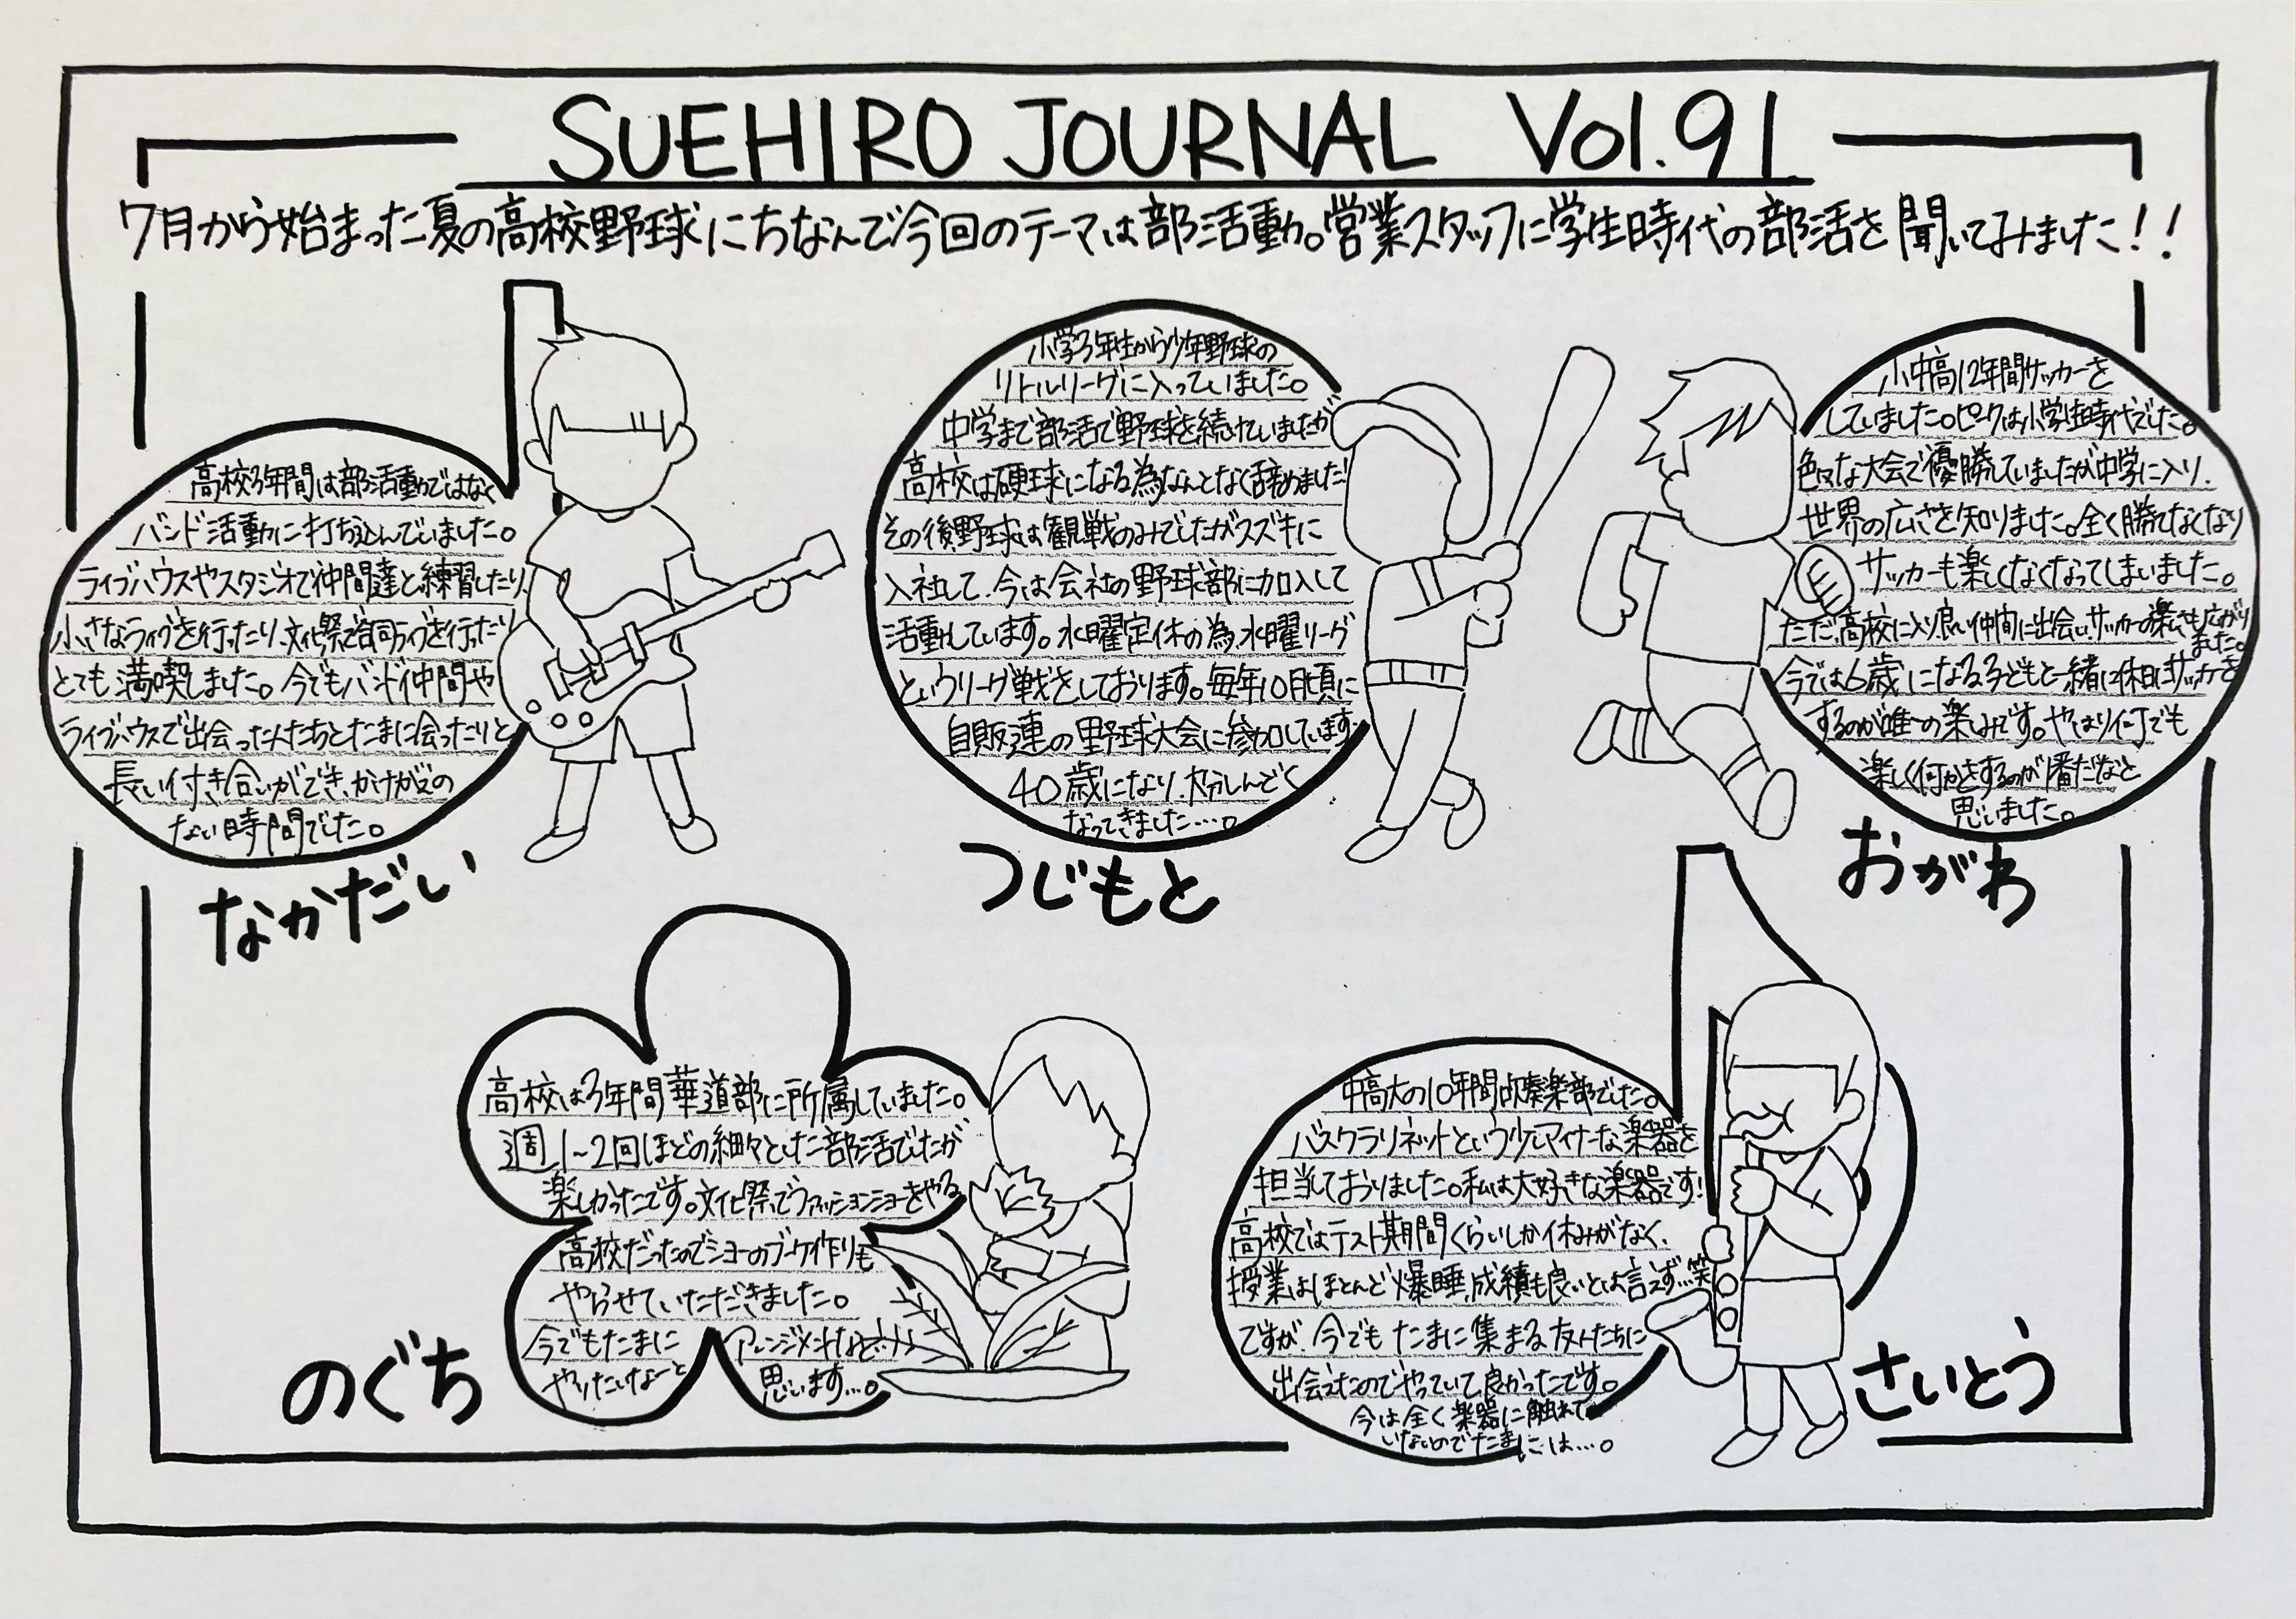 SUEHIRO JOURNAL Vol.91
7月から始まった夏の高校野球にちなんで今回のテーマは部活動。営業スタッフに学生時代の部活を聞いてみました!!
高校3年間は部活動ではなく
バンド活動に打ち込んでいました。
ライブハウスやスタジオで仲間達と練習したり、
小さなライブを行ったり、文化祭で合同ライブを行ったり
とても満喫しました。今でもバンド仲間や
ライブハウスで出会った人たちとたまに会ったりと
長い付き合いができ、かけがえの
ない時間でした。
なかだい
小学3年生から少年野球の
リトルリーグに入っていました。
中学まで部活で野球を続けていましたが
高校は硬球になる為なんとなく辞めました。
その後野球は観戦のみでしたがスズキに
入社して、今は会社の野球部に加入して
活動しています。水曜定休の為、水曜リーグ
というリーグ戦をしております。毎年10月頃に
自販連の野球大会に参加しています。
40歳になり、大分しんどく
なってきました…。
つじもと
小中高12年間サッカーを
していました。ピークは小学生時代でした。
色々な大会で優勝していましたが中学に入り、
世界の広さを知りました。全く勝てなくなり
サッカーも楽しくなくなってしまいました。
ただ、高校に入り良い仲間に出会い、サッカーの楽しさも広がり
ました。
今では6歳になる子どもと一緒に休日にサッカーを
するのが唯一の楽しみです。やはり何でも
楽しく何かをするのが1番だなと
思いました。
おがわ
高校は3年間華道部に所属していました。
週1~2回ほどの細々とした部活でしたが
楽しかったです。文化祭でファッションショーをやる
高校だったのでショーのブーケ作りも
やらせていただきました。
今でもたまに アレンジメントなど…
やりたいなーと 思います…。
のぐち
中高大の10年間吹奏楽部でした。
バスクラリネットという少しマイナーな楽器を
担当しておりました。私は大好きな楽器です!
高校ではテスト期間くらいしか休みがなく、
授業はほとんど爆睡、成績も良いとは言えず…笑
ですが、今でもたまに集まる友人たちに
出会えたのでやっていて良かったです。
今は全く楽器に触れて
いないのでたまには…。
さいとう